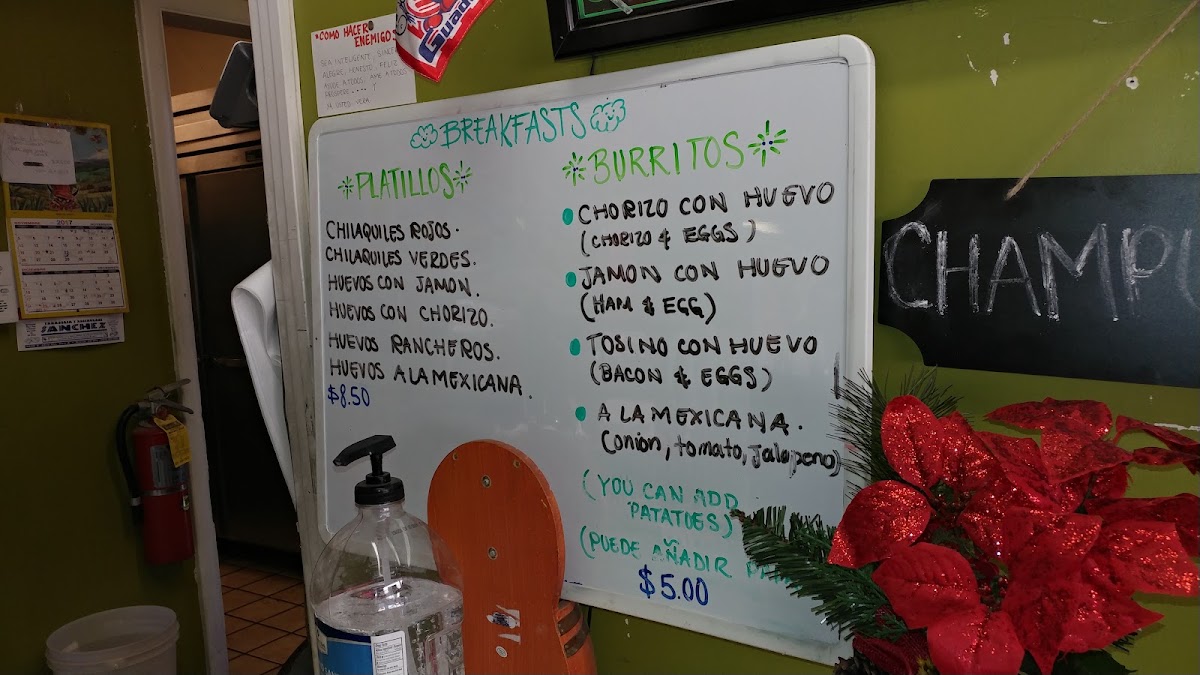 *COMO HACER
ENEMIGOS
SEA INTELIGENTE,
ALEGRE, HONESTO, FELIZ
YA USTED VERA
Guada
2017
SANCHEZ
BREAKFASTS
PLATILLOS
CHILAQUILES ROJOS.
CHILAQUILES VERDES.
HUEVOS CON JAMON.
HUEVOS CON CHORIZO.
HUEVOS RANCHEROS.
HUEVOS A LA MEXICANA.
$8.50
BURRITOS
CHORIZO CON HUEVO
(CHORIZO & EGGS)
JAMON CON HUEVO
(HAM & EGG)
TOSINO CON HUEVO
(BACON & EGGS)
A LA MEXICANA.
(onion, tomato, jalapeno)
(YOU CAN ADD
PATATOES)
(PUEDE AÑADIR
$5.00
CHAMPU